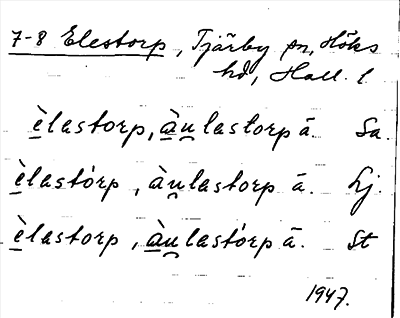 7-8 Elestorp, Tjärby sn, Höks
hd, Hall. l
èlastorp, àu̯lastorp ā. Sa.
èlastórp, àu̯lastorp ā. Lj.
èlastorp, àu̯lastórp ā. St
1947.